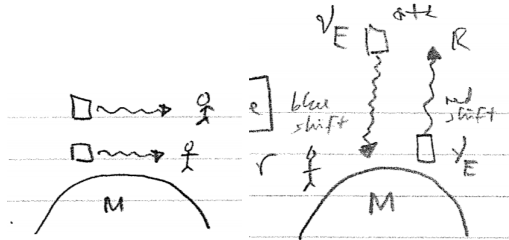 ν_E
R
e
blue
shift
red
shift
r
ν_E
M
M